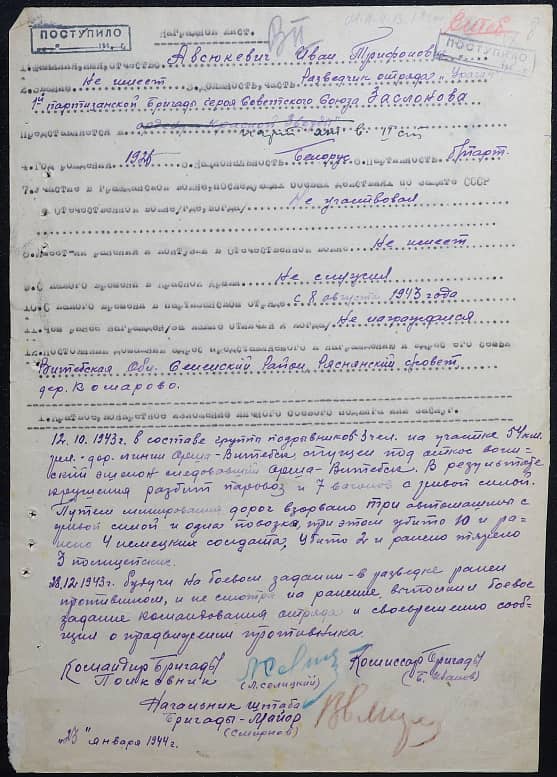 Наградной лист.
ПОСТУПИЛО
ПОСТУПИЛО
1. Фамилия, имя, отчество Авсюкевич Иван Трифонович
2. Звание Не имеет 3. Должность, часть Разведчик отряда "Ураган"
1ой партизанской бригады героя Советского Союза Заслонова
Представляется к ордену "Красной Звезды"
4. Год рождения 1925 5. Национальность Белорус 6. Партийность б/парт.
7. Участие в Гражданской войне, последующих боевых действиях по защите СССР
и Отечественной войне /где, когда/ Не участвовал
8. Имеет-ли ранения и контузии в Отечественной войне Не имеет
9. С какого времени в Красной Армии Не служил
10. С какого времени в партизанском отряде с 8 августа 1943 года
11. Чем ранее награжден /за какие отличия и когда/ Не награждался
12. Постоянный домашний адрес представляемого к награждению и адрес его семьи
Витебская Обл. Сенненский Район, Ряснянский с/совет,
дер. Комарово.
1. Краткое, конкретное изложение личного боевого подвига или заслуг.
12.10.1943г. в составе группы подрывников 3 чел. на участке 54 км.
жел.-дор. линии Орша-Витебск спущен под откос воин-
ский эшелон следовавший Орша-Витебск. В результате
крушения разбит паровоз и 7 вагонов с живой силой.
Путем минирования дорог взорвано три автомашины с
живой силой и одна повозка, при этом убито 10 и ра-
нено 4 немецких солдата, убито 2 и ранено тяжело
3 полицейских.
28.12.1943г. будучи на боевом задании - в разведке ранен
противником, и не смотря на ранение, выполнил боевое
задание командования отряда и своевременно сооб-
щил о продвижении противника.
Командир Бригады Комиссар Бригады
Полковник (Л. Селицкий) (Б. Иванов)
Начальник Штаба
Бригады-Майор
(Смирнов)
"23" января 1944г.